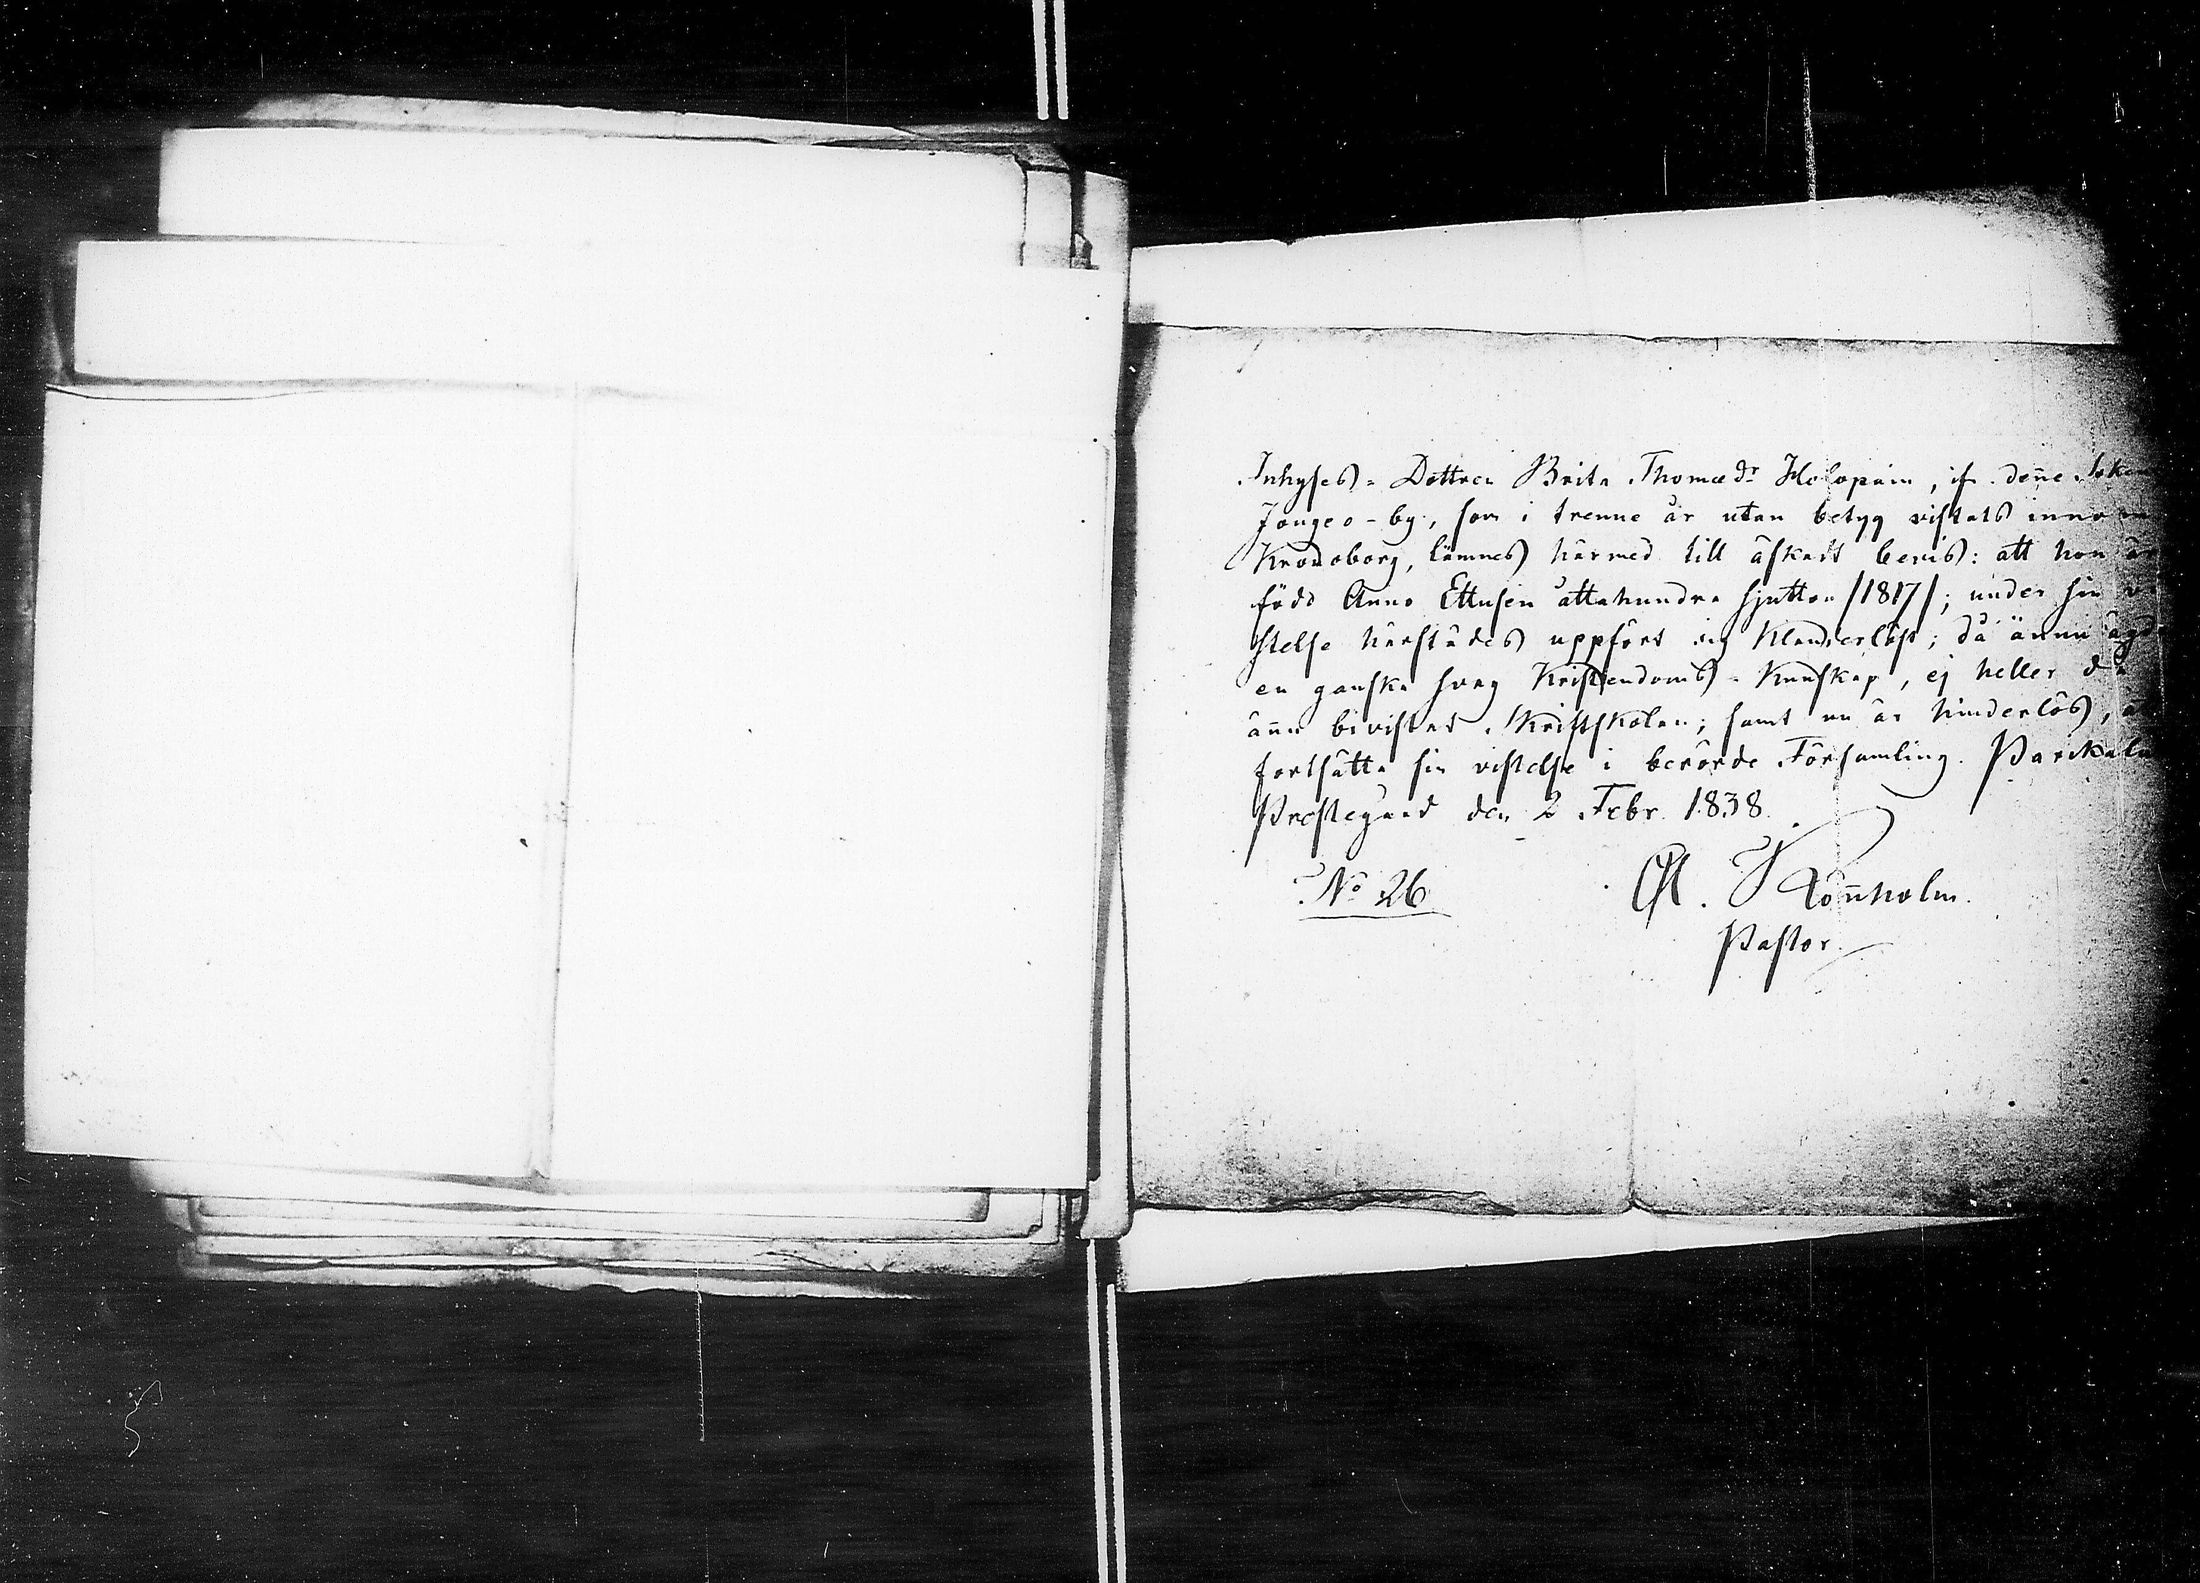 Inhyses-Dottren Brita Thomædr Holopain, ifr. denne Soken
Jougeo-by, som i trenne år utan betyg vistats innom
Kronoborg, lämnes härmed till äskadt bevis: att hon är
född Anno Ettusen åttahundra Sjutton /1817/; under sin vi
stelse härstädes uppfört sig Klanderlöst; då ännu ägde
en ganska svag Kristendoms-Kunskap, ej heller då
ännu bivistat Skriftskolan; samt nu är hinderlös, at
fortsätta sin vistelse i berörde Församling. Parikala
Prestegård den 2 Febr. 1838.
No 26 Ol. Rönnholm.
Pastor.